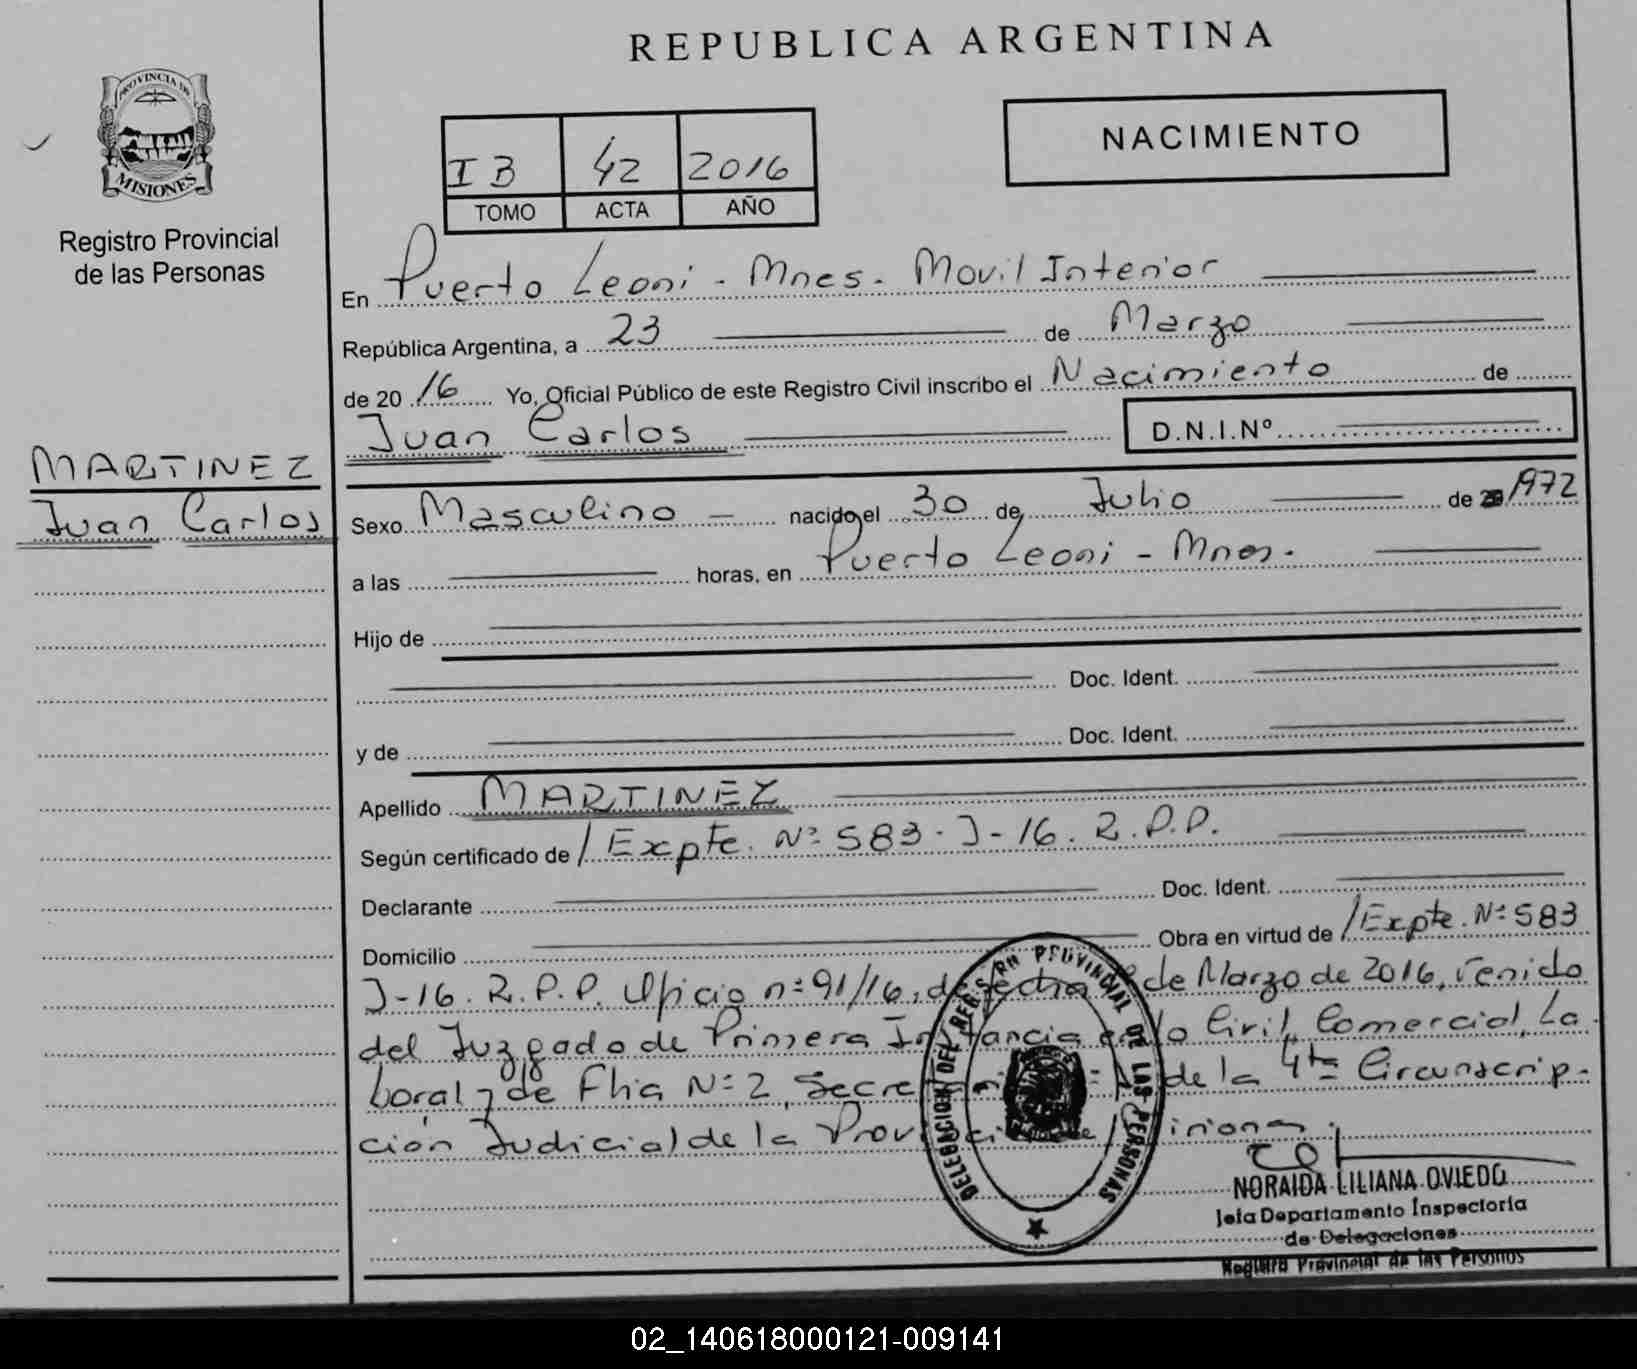 REPUBLICA ARGENTINA
PROVINCIA DE
MISIONES
Registro Provincial
de las Personas
IB 42 2016
TOMO ACTA AÑO
NACIMIENTO
En Puerto Leoni - Mnes. Movil Interior
República Argentina, a 23 de Marzo
de 2016 Yo, Oficial Público de este Registro Civil inscribo el Nacimiento de
Juan Carlos D.N.I.Nº
MARTINEZ
Juan Carlos
Sexo Masculino nacido el 30 de Julio de 1972
a las horas, en Puerto Leoni - Mnes.
Hijo de
Doc. Ident.
y de Doc. Ident.
Apellido MARTINEZ
Según certificado de / Expte. Nº 583 - J - 16. R.P.P.
Declarante Doc. Ident.
Domicilio Obra en virtud de / Expte. Nº 583
J-16. R.P.P. Oficio nº 91/16, de fecha de Marzo de 2016, venido
del Juzgado de Primera Instancia en lo Civil, Comercial, La
boral y de Flia Nº 2, de la 4ta Circunscrip-
ción Judicial de la Provincia de Misiones.
DELEGACION DEL REGISTRO PROVINCIAL DE LAS PERSONAS
NORAIDA LILIANA OVIEDO
Jefa Departamento Inspectoria
de Delegaciones
Registro Provincial de las Personas
02_140618000121-009141